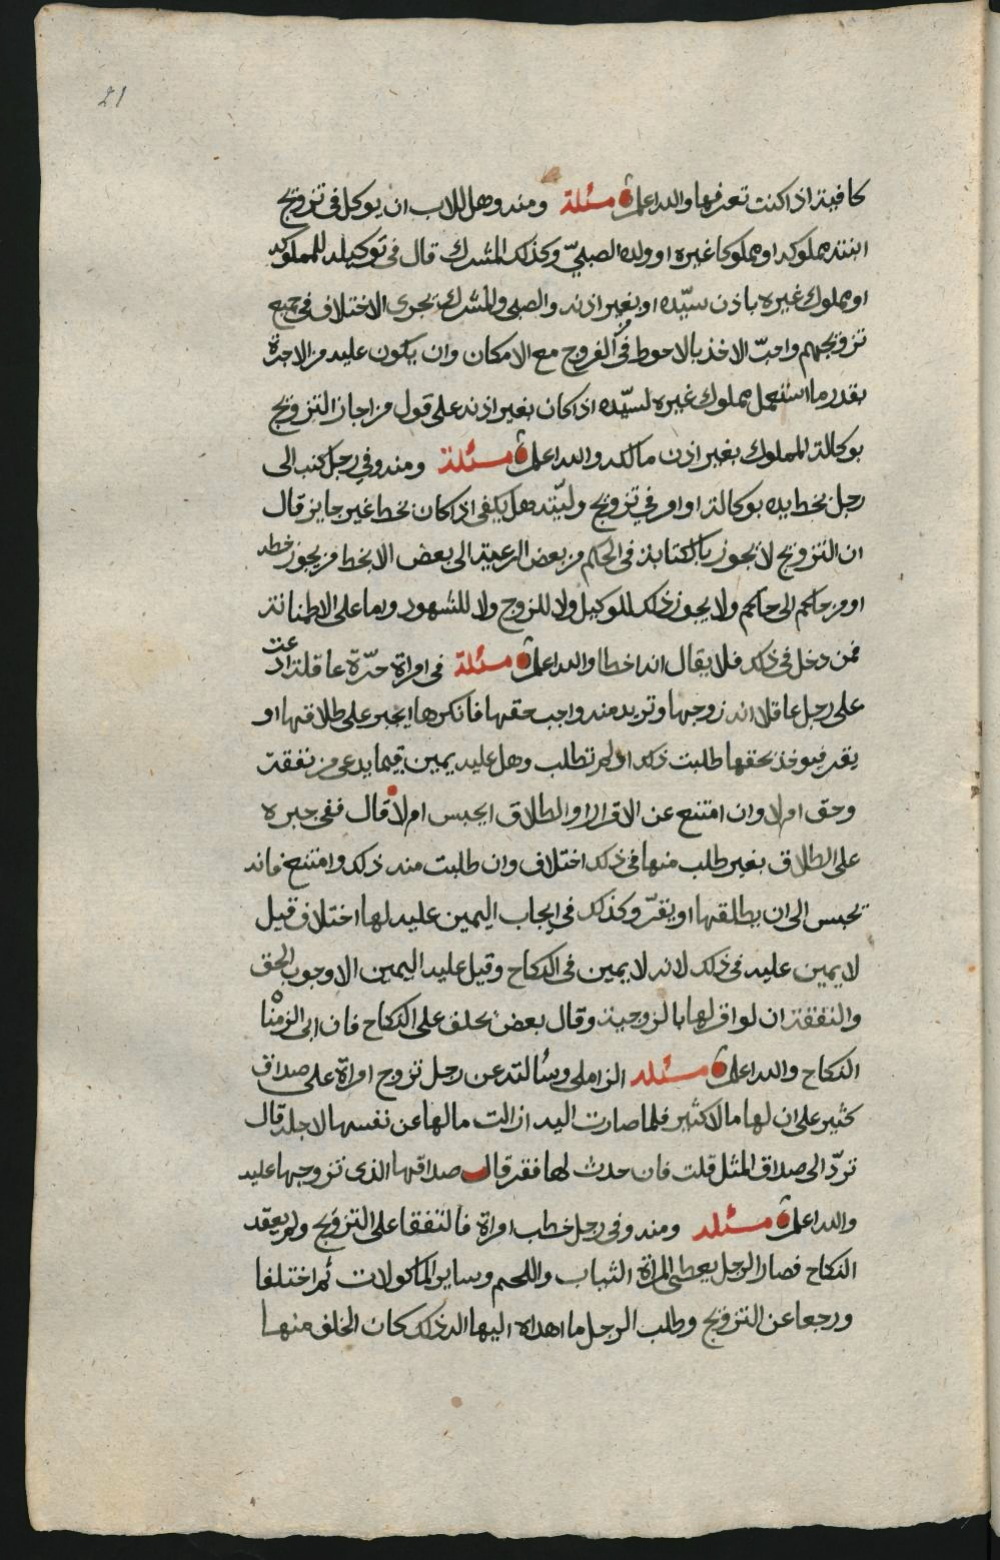 21
كافية اذا كنت تعرفها والله اعلم مسئلة ومنه وهل للاب ان يوكل في تزويج
ابنته مملوكه او مملوكا غيره او ولده الصبيّ وكذلك المشرك قال في توكيله للمملوكه
او مملوك غيره باذن سيّده او بغير اذنه والصبي والمشرك يجرى الاختلاف في جميع
تزويجهم واحبّ الاخذ بالاحوط في الفروج مع الامكان وان يكون عليه من الاجرة
بقدر ما استعمل مملوك غيره لسيّده اذا كان بغير اذنه على قول من اجاز التزويج
بوكالة المملوك بغير اذن مالكه والله اعلم مسئلة ومنه وفي رجل كتب الى
رجل بخط يده بوكالة او امر في تزويج وليّته هل يكفى اذا كان بخط غير جايز قال
ان التزويج لا يجوز بالكتابة في الحكم من بعض الرعية الى بعض الا بخط من يجوز خطه
او من حاكم الى حاكم ولا يجوز ذلك للوكيل ولا للزوج ولا للشهود واما على الاطمانة
فمن دخل في ذلك فلا يقال انه اخطا والله اعلم مسئلة في امراة حرّة عاقلة ادعت
على رجل عاقل انه زوجها وتريد منه واجب حقها فانكرها ايجبر على طلاقها او
يقر فيوخذ بحقها طلبت ذلك او لم تطلب وهل عليه يمين فيما يدعى من نفقة
وحق ام لا وان امتنع عن الاقرار او الطلاق ايحبس ام لا قال ففى جبره
على الطلاق بغير طلب منها في ذلك اختلاف وان طلبت منه ذلك وامتنع فانه
يحبس الى ان يطلقها او يقرّ وكذلك في ايجاب اليمين عليه لها اختلاف قيل
لا يمين عليه في ذلك لانه لا يمين في النكاح وقيل عليه اليمين الا وجوب الحق
والنفقة ان لو اقر لها بالزوجية وقال بعض يحلف على النكاح فان ابى الزمنا
النكاح والله اعلم مسئله الزاملي وسُالته عن رجل تزوج امراة على صداق
كثير على ان لها مالا كثير فلما صارت اليه ازالت مالها عن نفسها لاجله قال
تردّ الى صداق المثل قلت فان حدث لها فقر قال صداقها الذى تزوجها عليه
والله اعلم مسئله ومنه وفي رجل خطب امراة فاتفقا على التزويج ولم يعقد
النكاح فصار الرجل يعطى المراة الثياب واللحم وساير الماكولات ثم اختلفا
ورجعا عن التزويج وطلب الرجل ما اهداه اليها اله ذلك كان الخلف منها